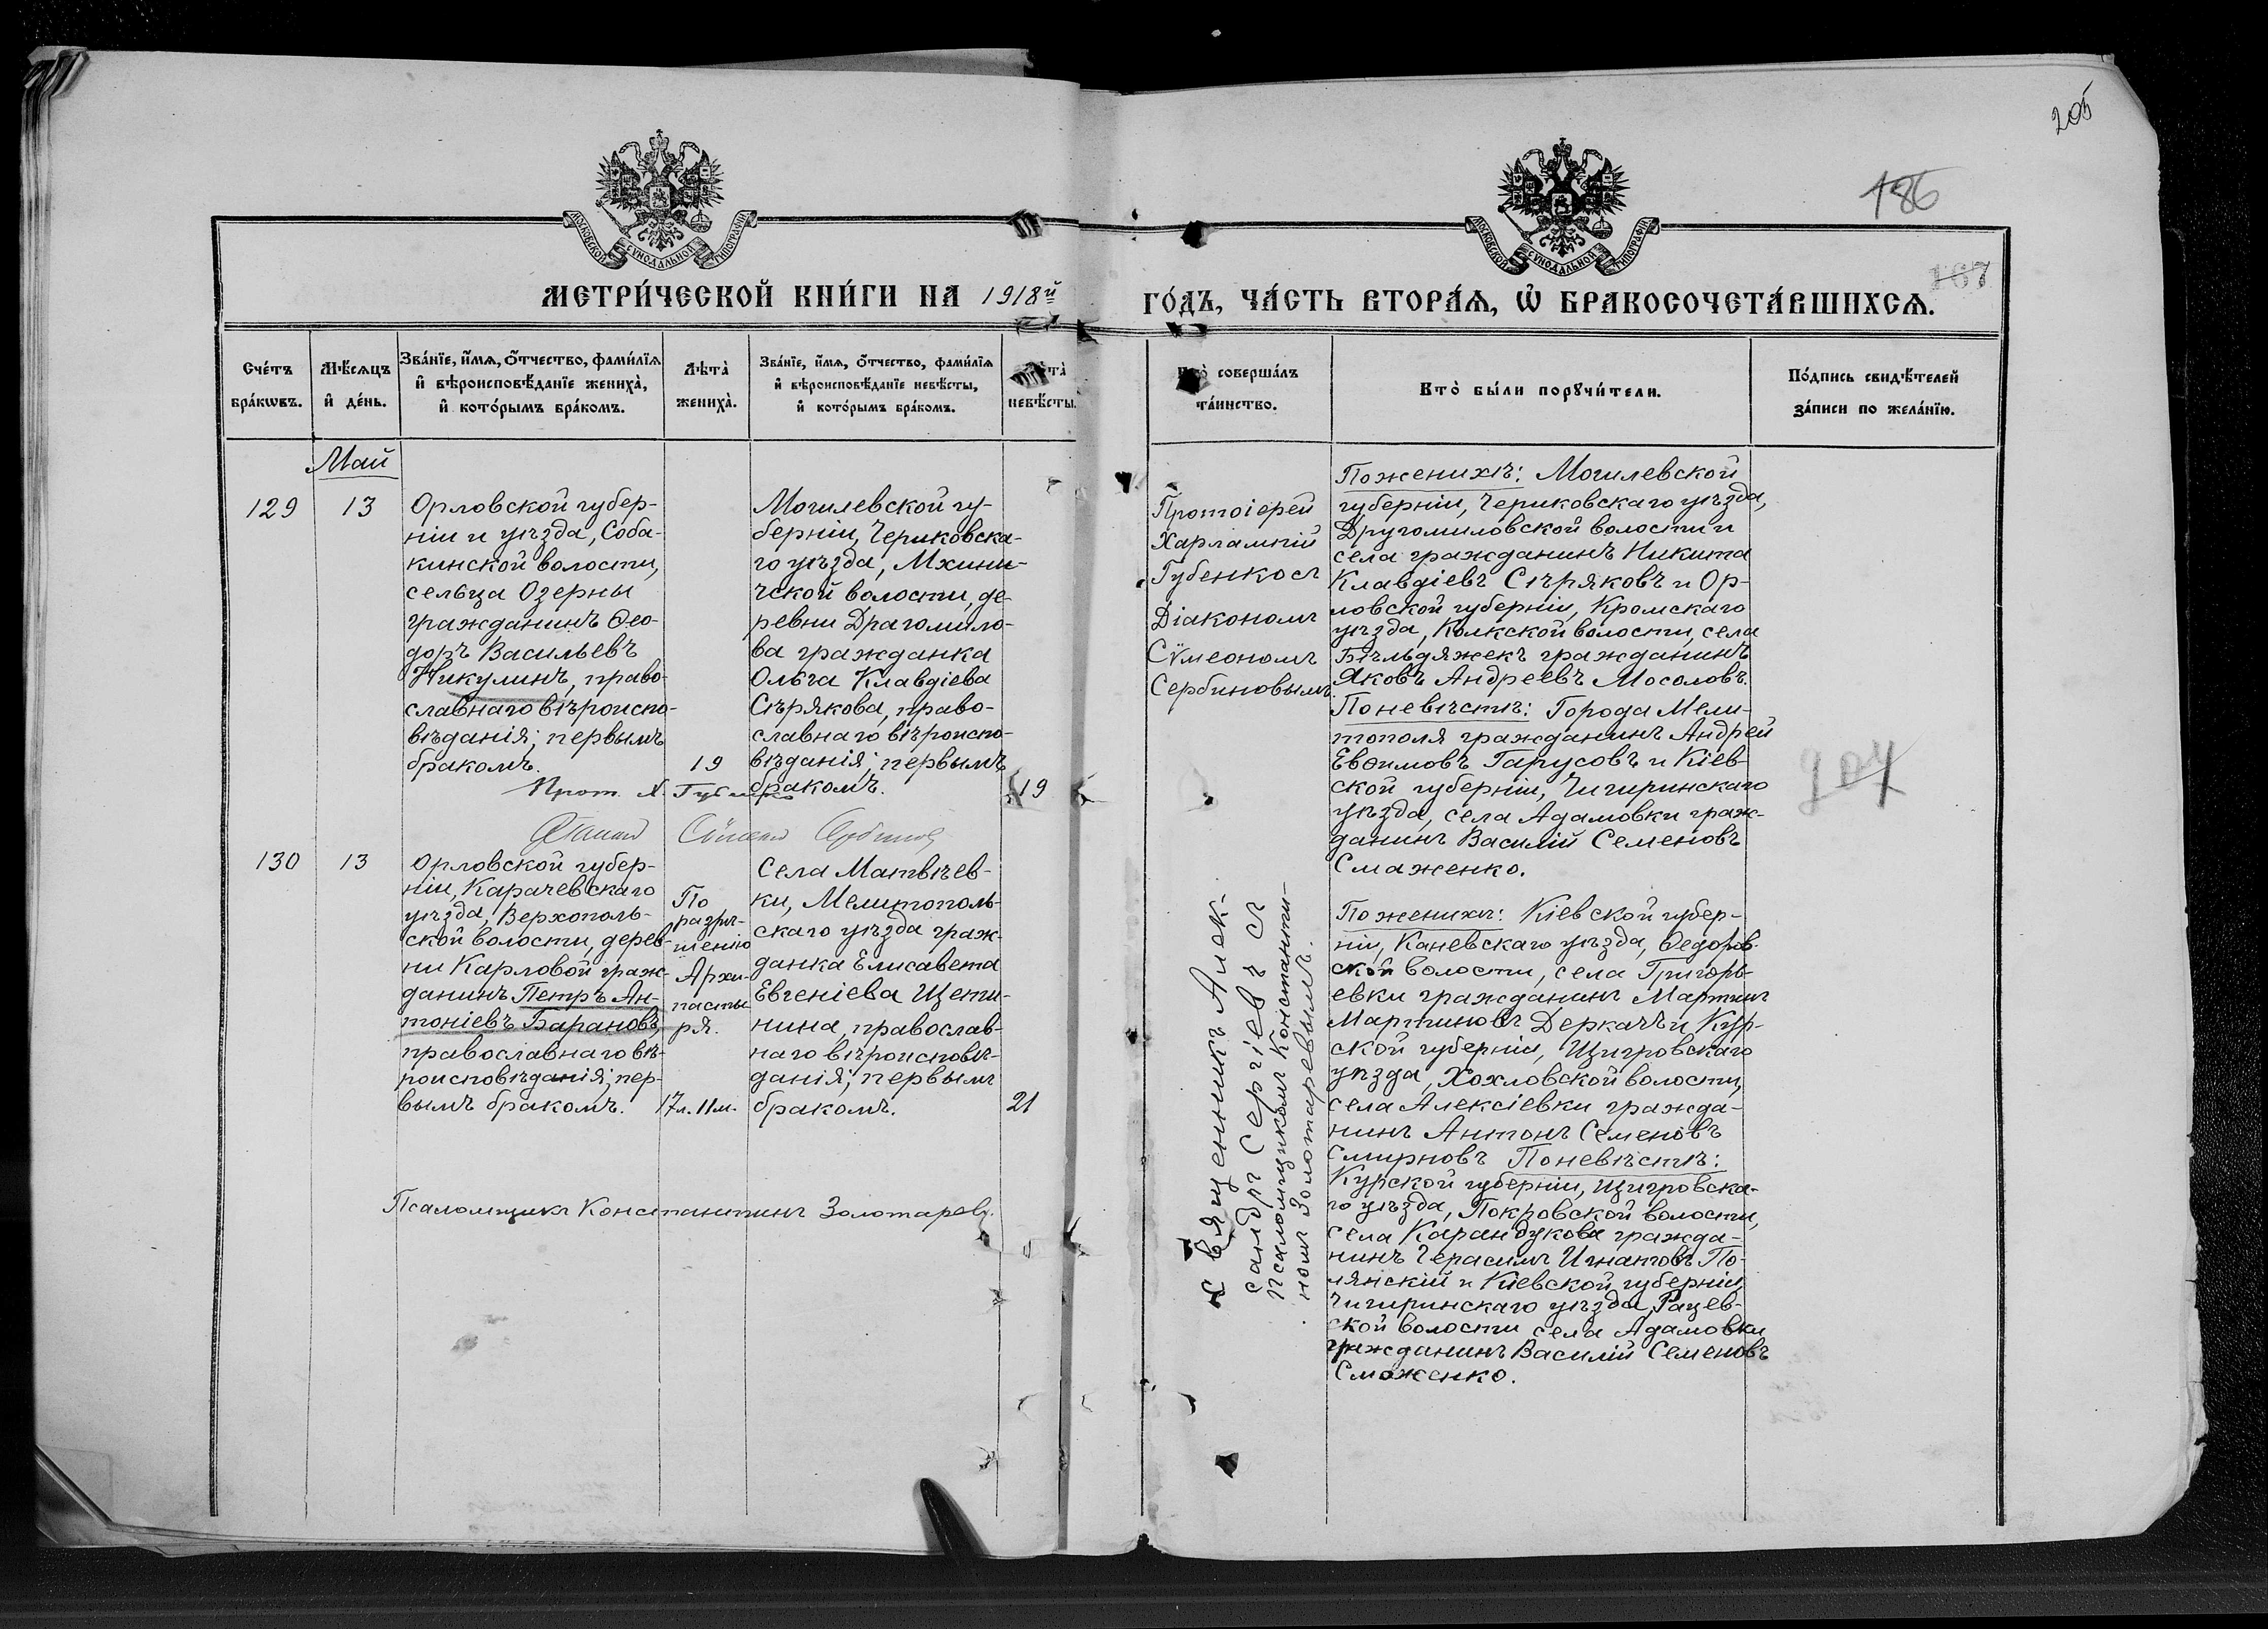 205
186
167
МОСКОВСКОЙ СУНОДАЛЬНОЙ ТИПОГРАФІИ
МОСКОВСКОЙ СУНОДАЛЬНОЙ ТИПОГРАФІИ
МЕТРИ́ЧЕСКОЙ КНИ́ГИ НА 1918й
ГО́ДЪ, ЧА́СТЬ ВТОРА́Ѧ, Ѡ҆ БРАКОСОЧЕТА́ВШИХСѦ.
Сче́тъ
бра́кѡвъ.
Мѣ́сѧцъ
и҆ де́нь.
Зва́нїе, и҆́мѧ, ѻ҆́тчество, фами́лїѧ
и҆ вѣроисповѣ́данїе жениха̀,
и҆ кото́рымъ бра́комъ.
Лѣта̀
жениха̀.
Зва́нїе, и҆́мѧ, ѻ҆́тчество, фами́лїѧ
и҆ вѣроисповѣ́данїе невѣ́сты,
и҆ кото́рымъ бра́комъ.
невѣ́сты.
соверша́лъ
та́инство.
Кто̀ бы́ли порꙋчи́тели.
По́дпись свидѣ́телей
за́писи по жела́нїю.
Май
129
13
Орловской губер-
ніи и уѣзда, Соба-
кинской волости,
сельца Озерны
гражданинъ Ѳео-
доръ Васильевъ
Никулинъ, право-
славнаго вѣроиспо-
вѣданія; первымъ
бракомъ.
19
Могилевской гу-
берніи, Чериковска-
го уѣзда, Мхини-
чской волости, де-
ревни Драгомило-
ва гражданка
Ольга Клавдіева
Сѣрякова, право-
славнаго вѣроиспо-
вѣданія; первымъ
бракомъ.
19
Прот. Х. Губенко
Діаконъ Сѵмеонъ Сербиновъ
Протоіерей
Харлампій
Губенко съ
Діакономъ
Сѵмеономъ
Сербиновымъ.
По женихѣ: Могилевской
губерніи, Чериковскаго уѣзда,
Другомиловской волости и
села гражданинъ Никита
Клавдіевъ Сѣряковъ и Ор-
ловской губерніи, Кромскаго
уѣзда, Колкской волости, села
Бѣльдяжекъ гражданинъ
Яковъ Андреевъ Мосоловъ.
По невѣстѣ: Города Мели-
тополя гражданинъ Андрей
Евѳимовъ Гарусовъ и Кіев-
ской губерніи, Чигиринскаго
уѣзда, села Адамовки граж-
данинъ Василій Семеновъ
Смаженко.
204
130
13
Орловской губер-
ніи, Карачевскаго
уѣзда, Верхополь-
ской волости, дерев-
ни Карловой граж-
данинъ Петръ Ан-
тоніевъ Барановъ,
православнаго вѣ-
роисповѣданія; пер-
вымъ бракомъ.
По
разрѣ-
шенію
Архи-
пасты-
ря.
17 л. 11 м.
Села Матвѣев-
ки, Мелитополь-
скаго уѣзда граж-
данка Елисавета
Евгеніева Щети-
нина, православ-
наго вѣроисповѣ-
данія; первымъ
бракомъ.
21
Псаломщикъ Константинъ Золотаревъ.
Священникъ Алек-
сандръ Сергіевъ съ
Псаломщикомъ Константи-
номъ Золотаревымъ.
По женихѣ: Кіевской губер-
ніи, Каневскаго уѣзда, Ѳедоров-
ской волости, села Григорь-
евки гражданинъ Мартинъ
Мартиновъ Деркачъ и Кур-
ской губерніи, Щигровскаго
уѣзда, Хохловской волости,
села Алексіевки гражда-
нинъ Антонъ Семеновъ
Смирновъ По невѣстѣ:
Курской губерніи, Щигровска-
го уѣзда, Покровской волости,
села Карандукова гражда-
нинъ Герасимъ Игнатовъ По-
лянскій и Кіевской губерніи,
Чигиринскаго уѣзда, Рацев-
ской волости села Адамовки
гражданинъ Василій Семеновъ
Смаженко.